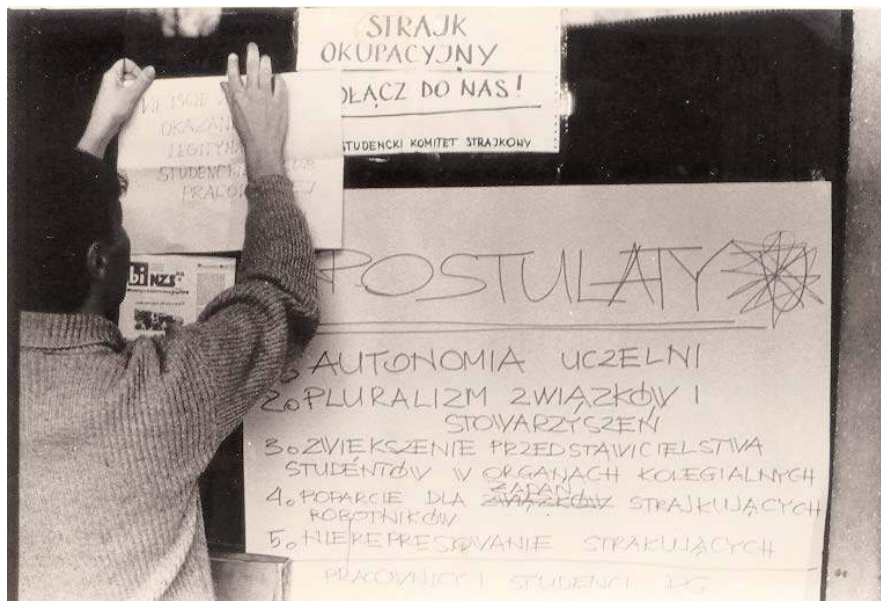 STRAJK
OKUPACYJNY
OŁĄCZ DO NAS!
STUDENCKI KOMITET STRAJKOWY
WEJŚCIE
OKAZAN
LEGITYMA
STUDENCKI LUB
PRACOW EJ
bi NZS
POSTULATY
1. AUTONOMIA UCZELNI
2. PLURALIZM ZWIĄZKÓW I
STOWARZYSZEŃ
3. ZWIĘKSZENIE PRZEDSTAWICIELSTWA
STUDENTÓW W ORGANACH KOLEGIALNYCH
ŻĄDAŃ
4. POPARCIE DLA ZWIĄZKÓW STRAJKUJĄCYCH
ROBOTNIKÓW
5. NIEREPRESJOWANIE STRAKUJĄCYCH
PRACOWNICY I STUDENCI PG